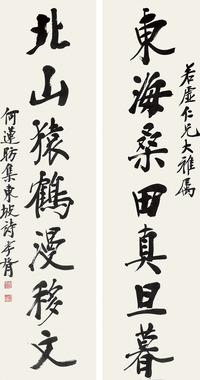 東海桑田真旦暮
若虛仁兄大雅屬
北山猿鶴漫移文
何蓮舫集東坡詩孝胥